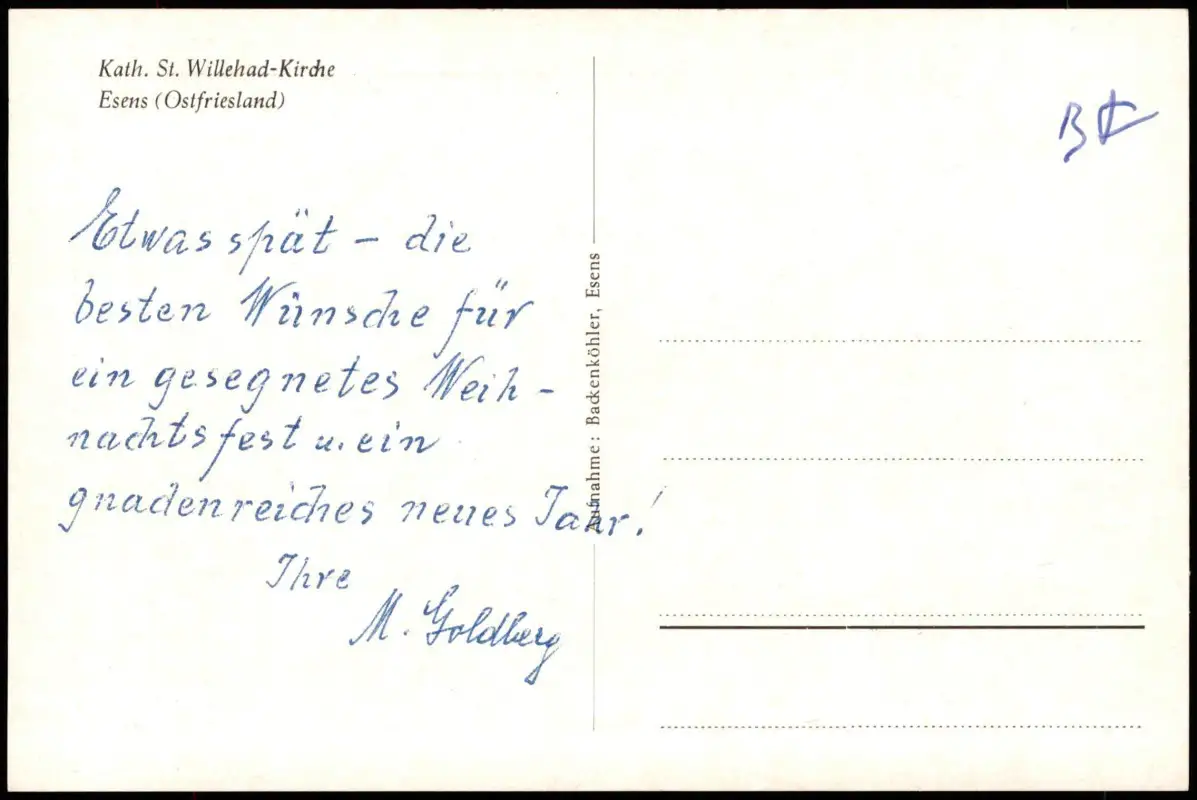 Kath. St. Willehad-Kirche
Esens (Ostfriesland)
Etwas spät – die
besten Wünsche für
ein gesegnetes Weih-
nachtsfest u. ein
gnadenreiches neues Jahr!
Ihre
M. Goldberg
Aufnahme: Backenköhler, Esens